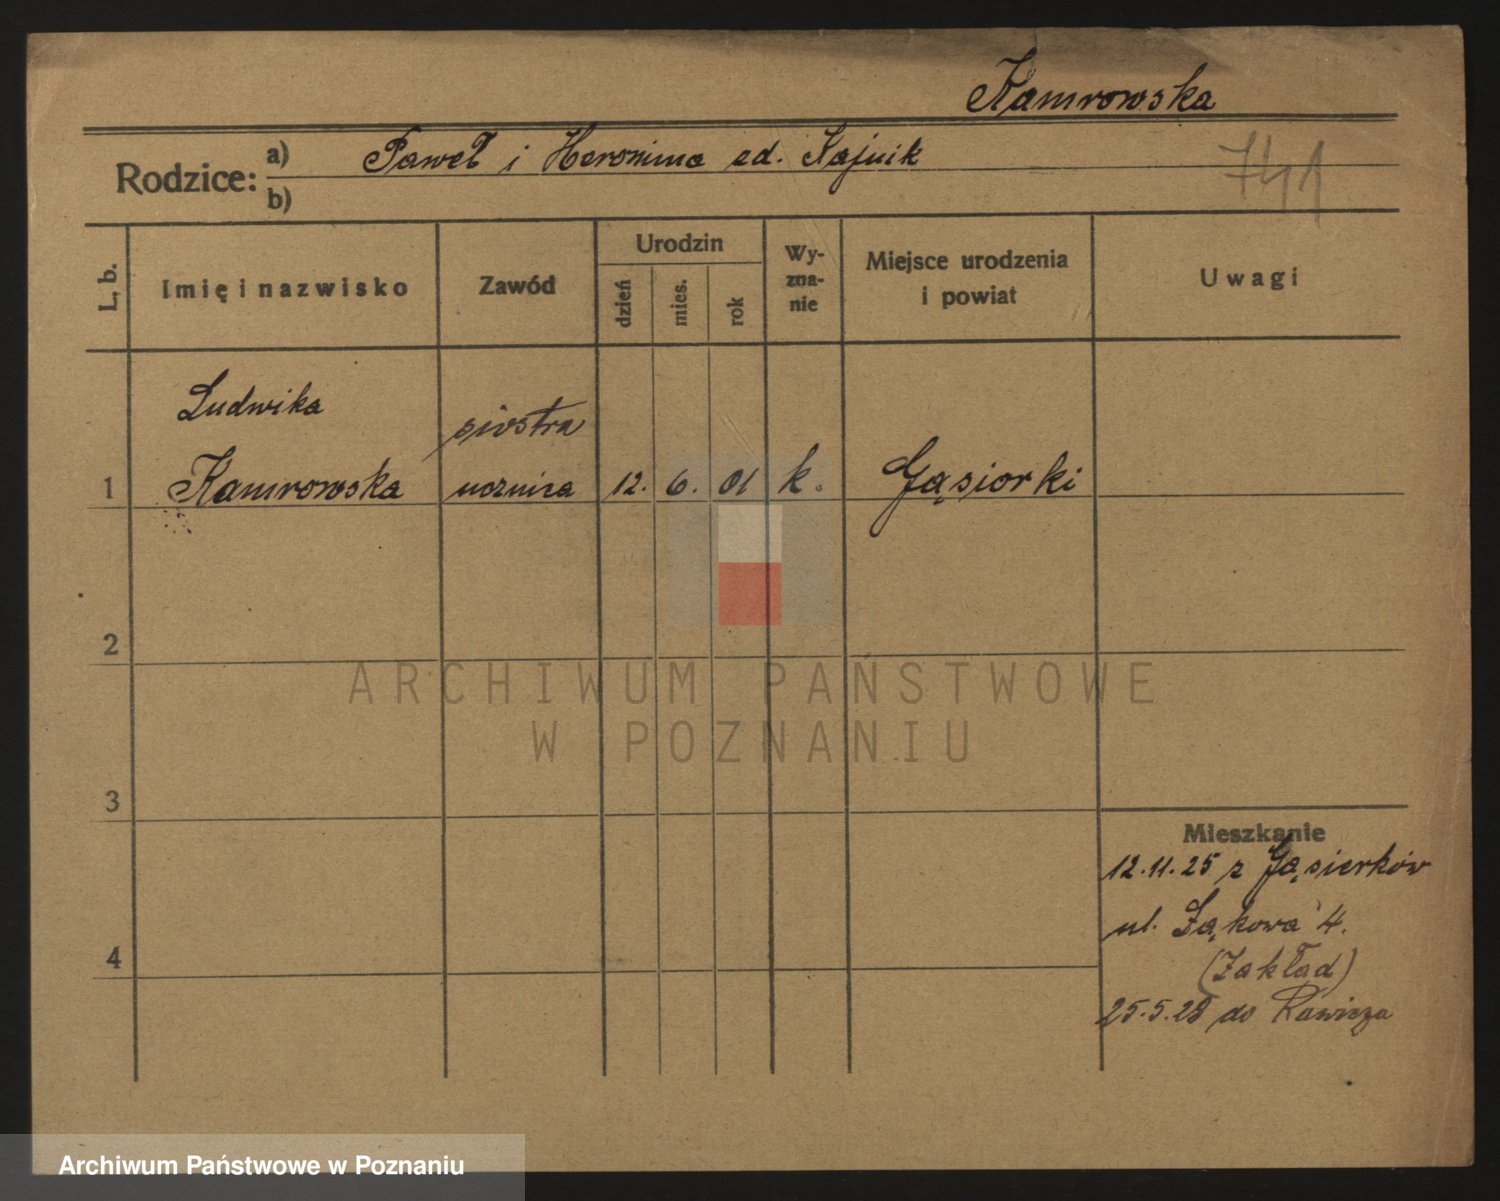 Kamrowska
Rodzice: a) Paweł i Heronima zd. Kajnik
b)
741
L. b.
Imię i nazwisko
Zawód
Urodzin
dzień
mies.
rok
Wy-
zna-
nie
Miejsce urodzenia
i powiat
Uwagi
Ludwika
siostra
1 Kamrowska ucznica 12. 6. 01 k. Gąsiorki
2
3
4
Mieszkanie
12.11.25 z Gąsierków
ul. Łąkowa 4.
(Zakład)
25.5.28 do Rawicza
ARCHIWUM PAŃSTWOWE
W POZNANIU
Archiwum Państwowe w Poznaniu